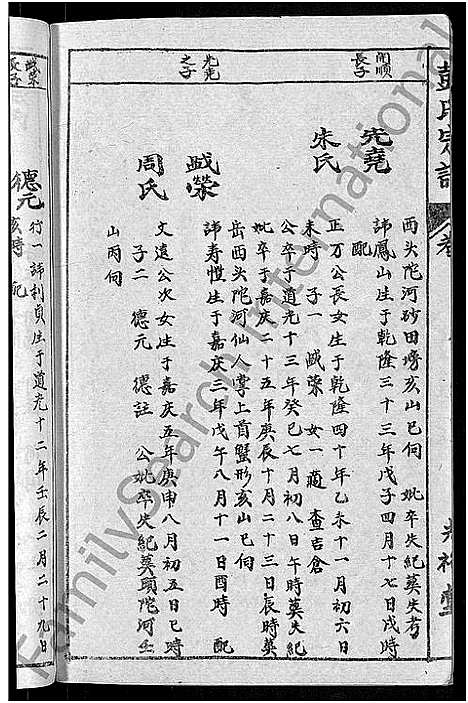 彭氏宗譜
卷
光裕堂
開順
長子
光堯
之子
西头陀河砂田塝亥山巳向 妣卒失纪葬失考
光堯
諱鳳山生于乾隆三十三年戊子四月十七日戌時
配
朱氏
正万公長女生于乾隆四十年乙未十一月初六日
未時 子一 盛榮 女一適 查吉倉
公卒于道光十三年癸巳七月初八日午時葬失紀
妣卒于嘉庆二十五年庚辰十月二十三日辰時葬
岳西头陀河仙人掌上首蟹形亥山巳向
盛榮
諱寿惺生于嘉庆三年戊午八月十一日酉時 配
周氏
文遠公次女生于嘉庆五年庚申八月初五日巳時
子二 德元 德註 公妣卒失紀葬頭陀河壬
山丙向
盛榮
長子
德元
行一諱利貞生于道光十二年壬辰二月二十九日
亥時 配
FamilySearch International